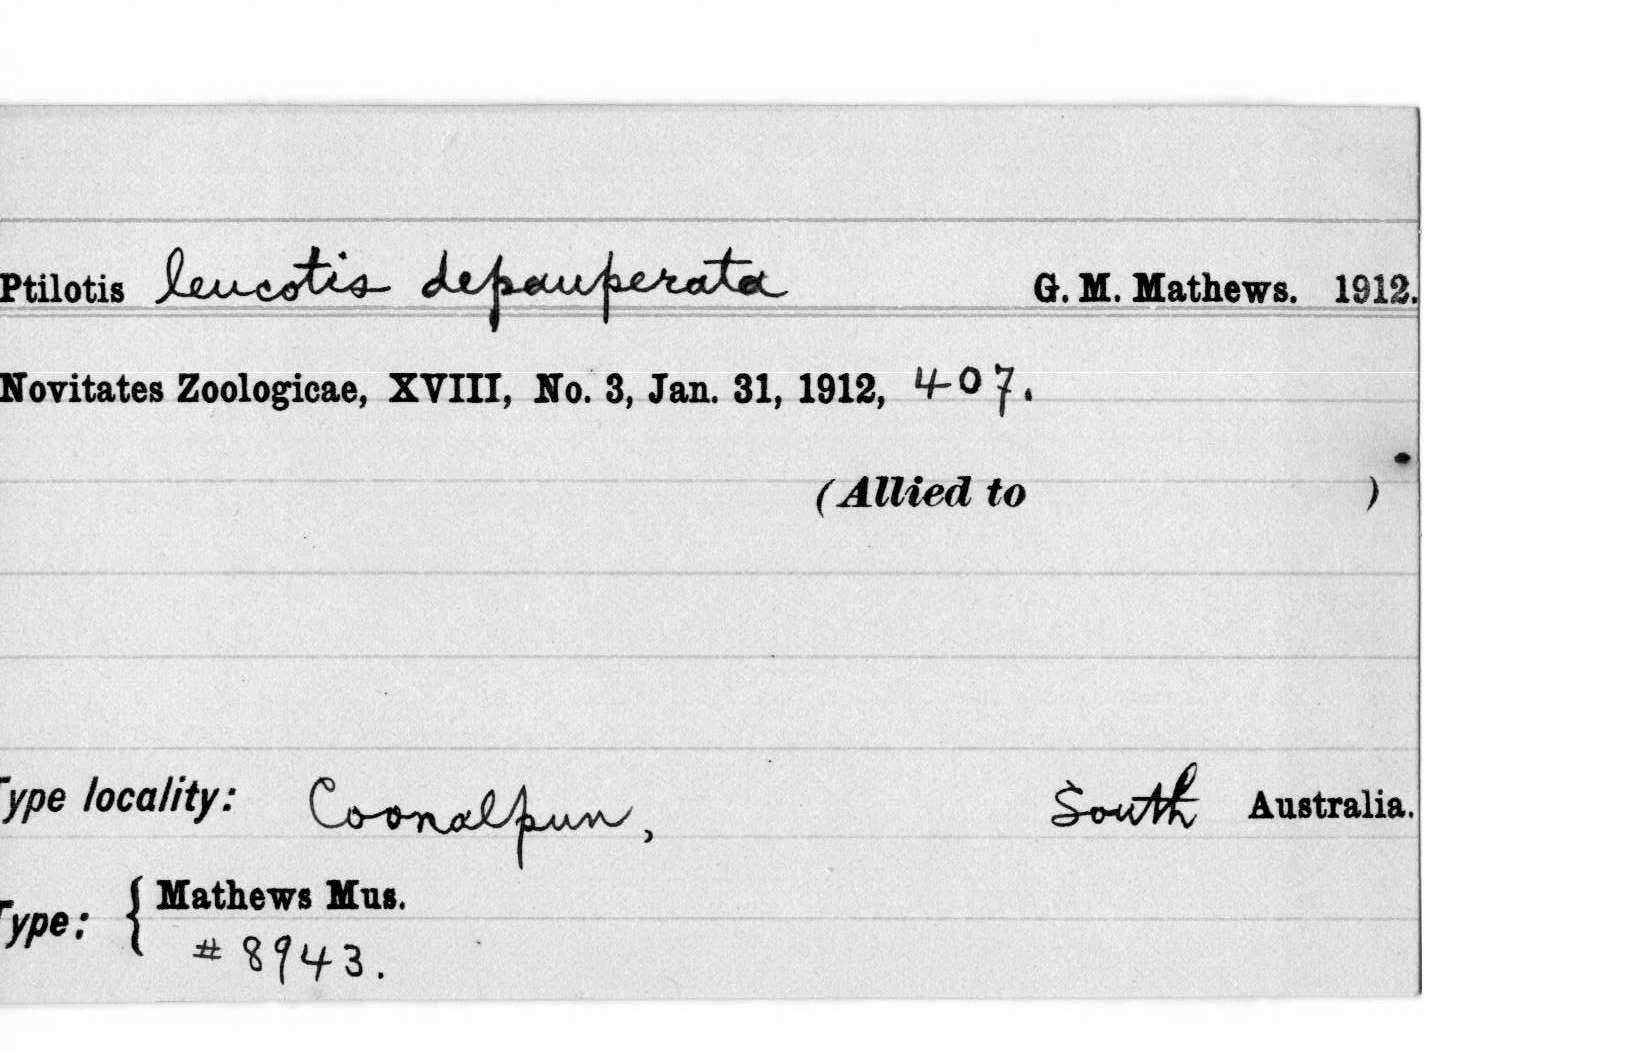 Ptilotis leucotis depauperata G. M. Mathews. 1912.
Novitates Zoologicae, XVIII, No. 3, Jan. 31, 1912, 407.
(Allied to )
Type locality: Coonalpun, South Australia.
Type: { Mathews Mus.
# 8943.